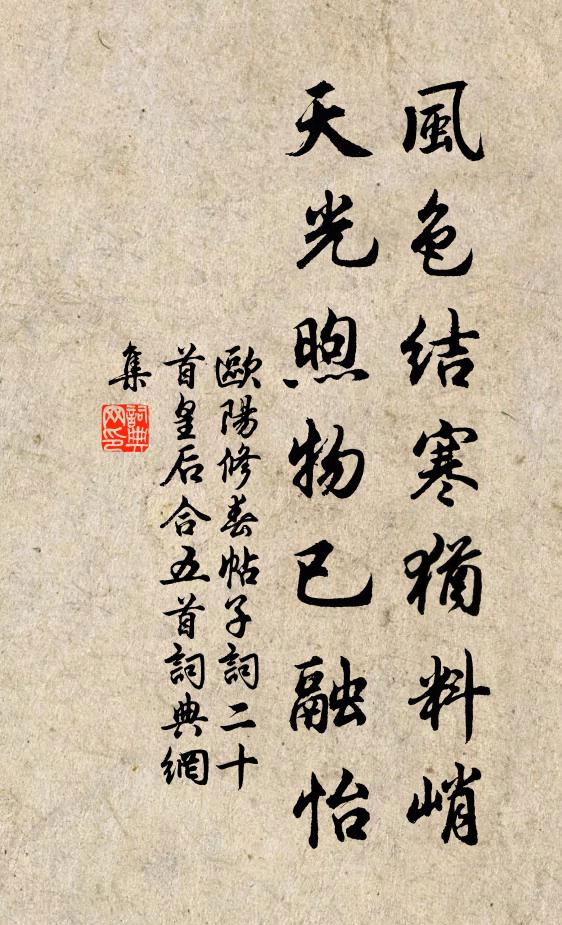 風色結寒猶料峭
天光煦物已融怡
歐陽修春帖子詞二十
首皇后合五首詞典網
集
詞典网印